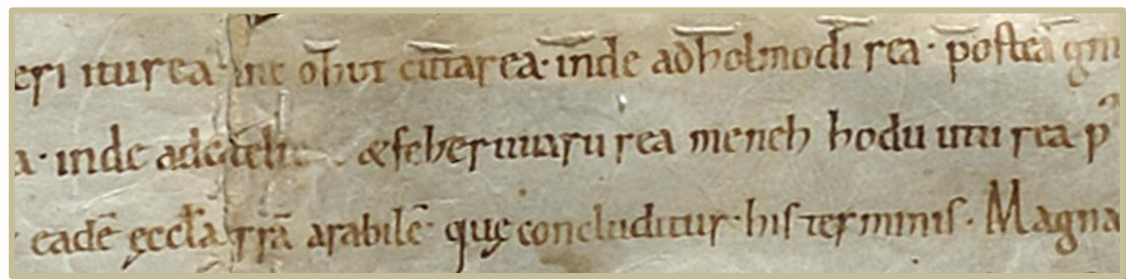 eri iturea· inc ohut cutarea· inde ad holmodi rea· p̄ostea gni
a· inde ad castelic &feheruuaru rea meneh hodu utu rea p᾽
eadē ęccła t̄rrā arabilē· quę concluditur· his terminis· Magna